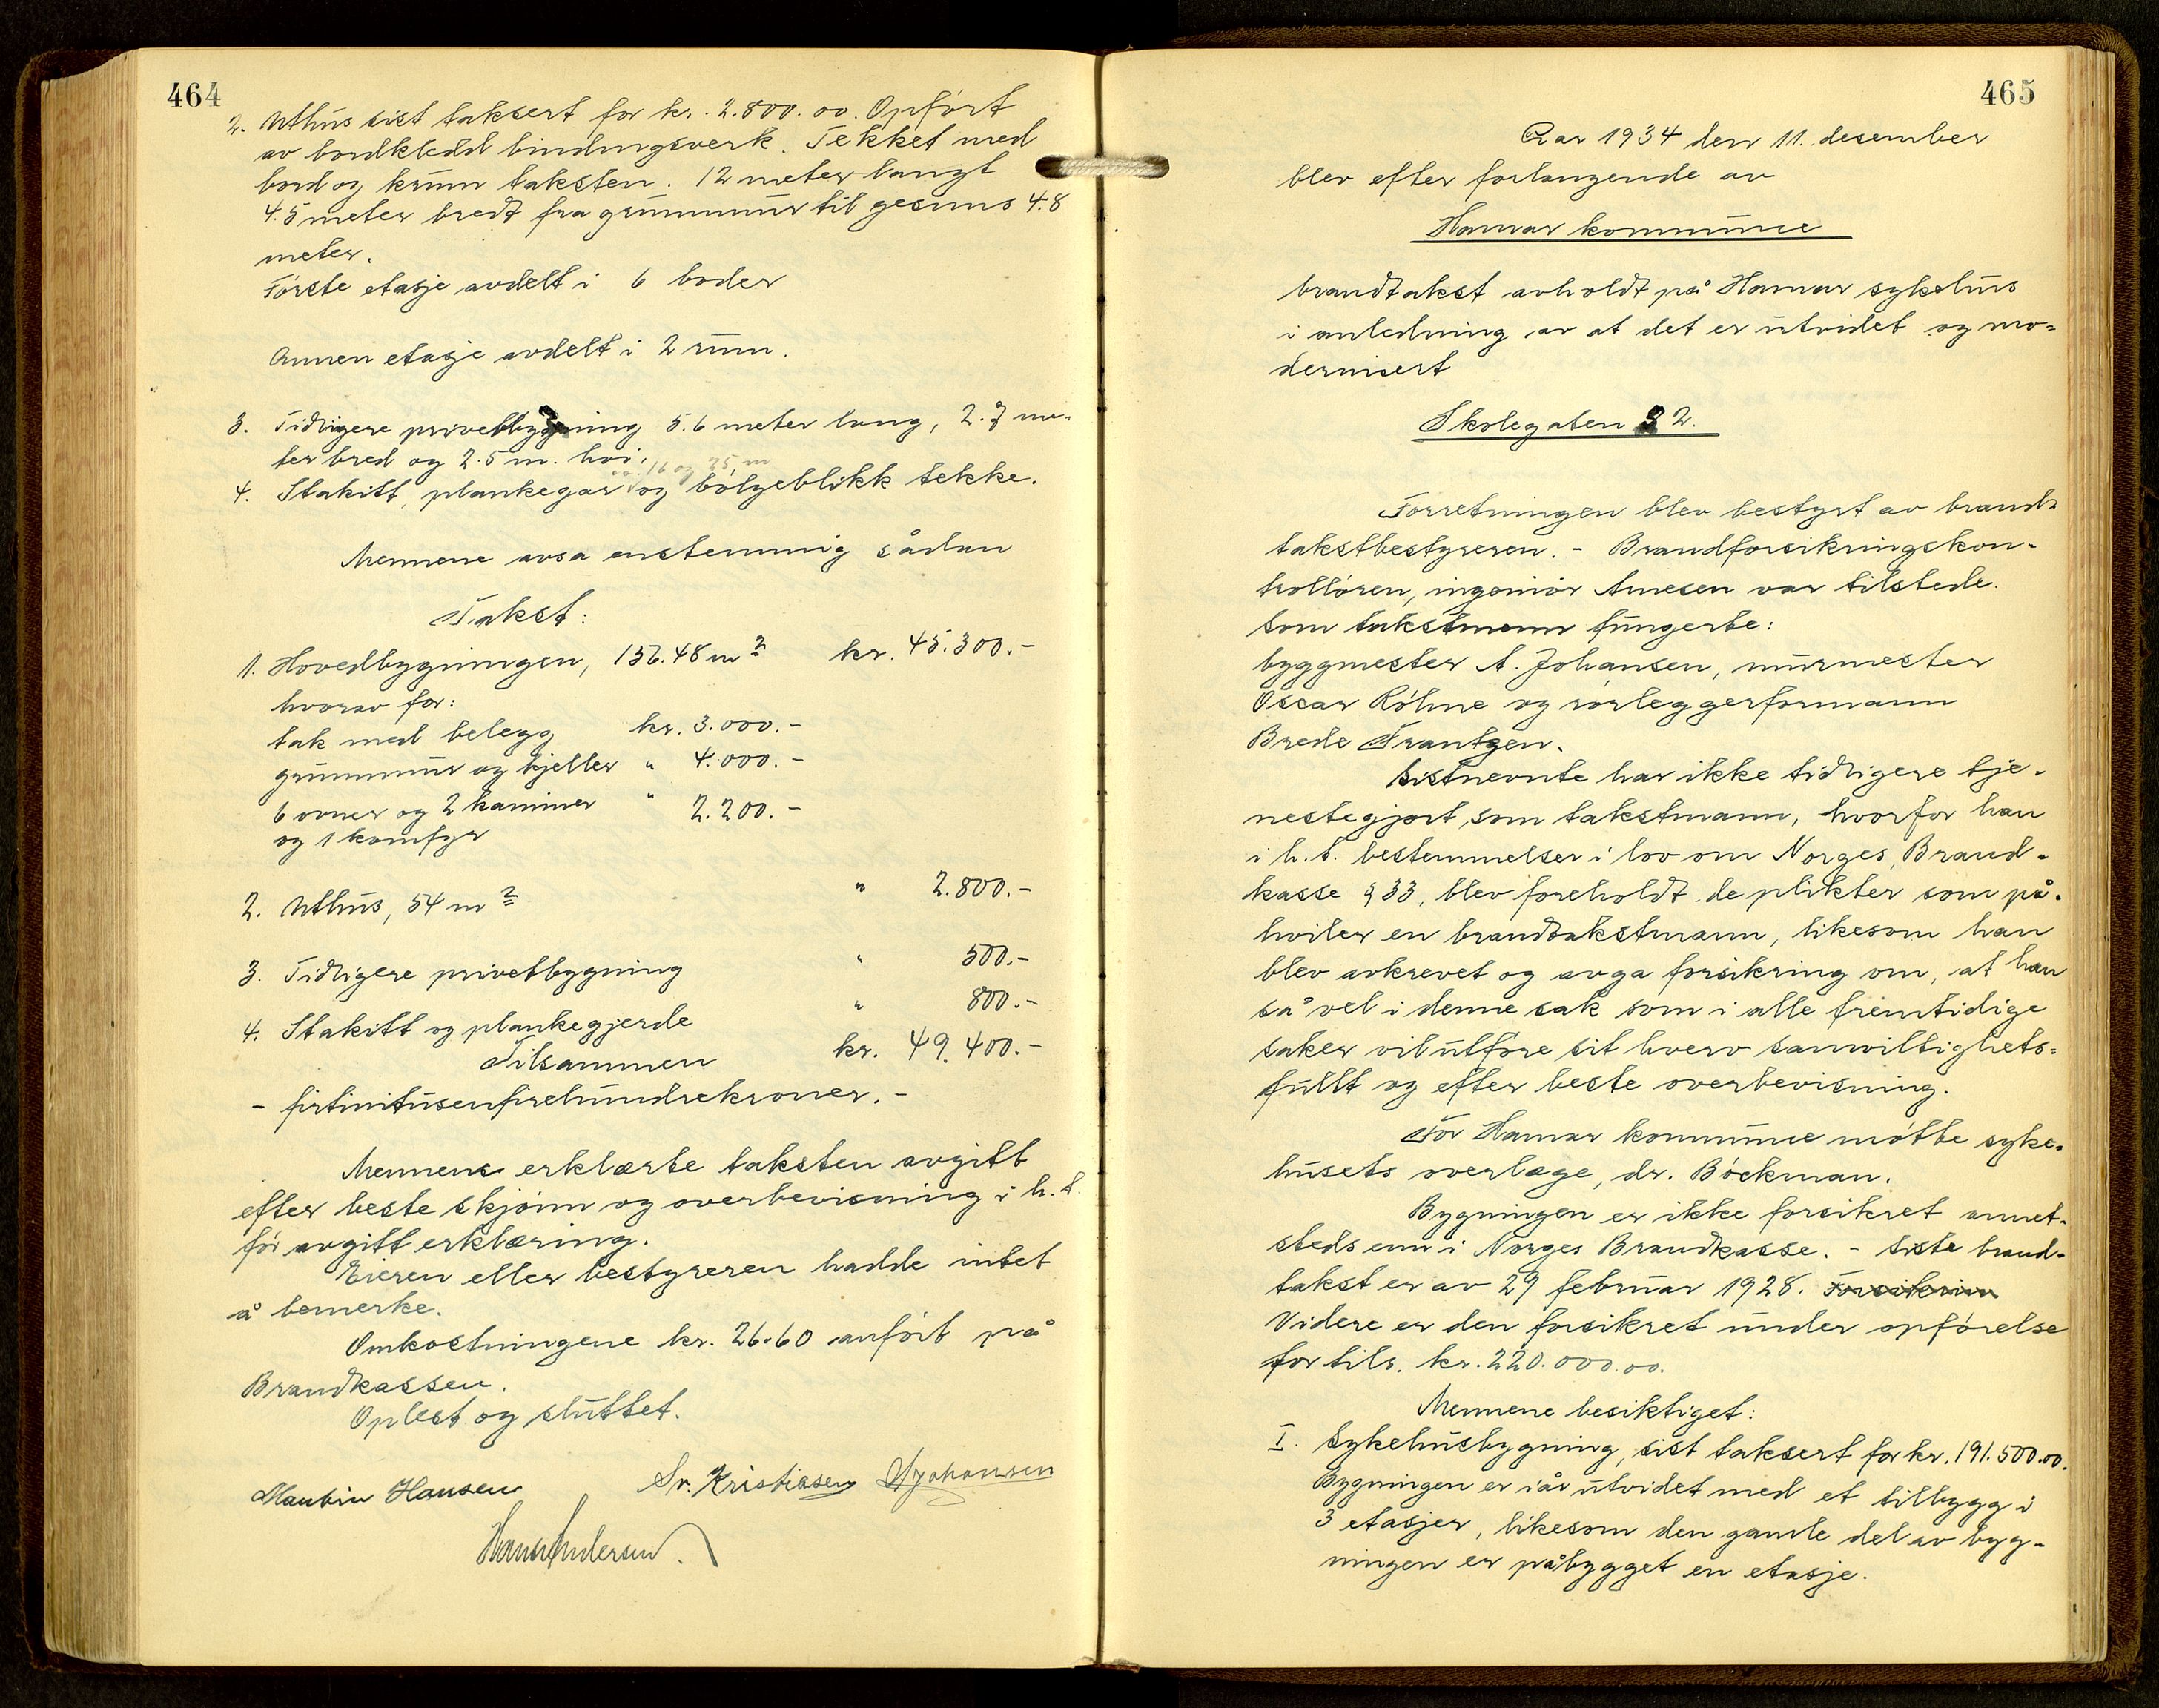 464
2. Uthus sist taksert for kr. 2.800.00. Opført
av bordkledd bindingsverk. Tekket med
bord og krum taksten. 12 meter langt
4.5 meter bredt fra grunnmur til gesims 4.8
meter.
Første etasje avdelt i 6 boder
Annen etasje avdelt i 2 rum.
3. Tidligere privetbygning 5.6 meter lang, 2.7 me-
ter bred og 2.5 m. høi.
4. Stakitt, plankegar og bølgeblikk tekke.
Mennene avsa enstemmig sådan
Takst:
1. Hovedbygningen, 156.48 m² kr. 45.300.-
hvorav for:
tak med belegg kr. 3.000.-
grunnmur og kjeller " 4.000.-
6 ovner og 2 kaminer " 2.200.-
og 1 komfyr
2. Uthus, 54 m² " 2.800.-
3. Tidligere privetbygning " 500.-
4. Stakitt og plankegjerde " 800.-
Tilsammen kr. 49.400.-
- firtinitusenfirehundrekroner. -
Mennene erklærte taksten avgitt
efter beste skjønn og overbevisning i h.t.
før avgitt erklæring.
Eieren eller bestyreren hadde intet
å bemerke.
Omkostningene kr. 26.60 anført på
Brandkassen.
Oplest og sluttet.
Martin Hansen Sv. Kristiasen A Johansen
Hans Andersen.
465
Aar 1934 den 11. desember
blev efter forlangende av
Hamar kommune
brandtakst avholdt på Hamar sykehus
i anledning av at det er utvidet og mo-
dernisert
Skolegaten 32.
Forretningen blev bestyrt av brand-
takstbestyreren. - Brandforsikringskon-
trolløren, ingeniør Arnesen var tilstede.
Som takstmenn fungerte:
byggmester A. Johansen, murmester
Oscar Röhne og rørleggerformann
Brede Frantzen.
Sistnevnte har ikke tidligere tje-
nestegjort som takstmann, hvorfor han
i h.t. bestemmelser i lov om Norges Brand-
kasse § 33, blev foreholdt de plikter som på-
hviler en brandtakstmann, likesom han
blev avkrevet og avga forsikring om, at han
så vel i denne sak som i alle fremtidige
saker vil utføre sit hverv samvittighets-
fullt og efter beste overbevisning.
For Hamar kommune møtte syke-
husets overlæge, dr. Böckman.
Bygningen er ikke forsikret annet-
steds enn i Norges Brandkasse. - Siste brand-
takst er av 29 februar 1928. Forsikrin
Videre er den forsikret under opførelse
for tils. kr. 220.000.00.
Mennene besiktiget:
I. Sykehusbygning, sist taksert for kr. 191.500.00.
Bygningen er iår utvidet med et tilbygg i
3 etasjer, likesom den gamle del av byg-
ningen er påbygget en etasje.